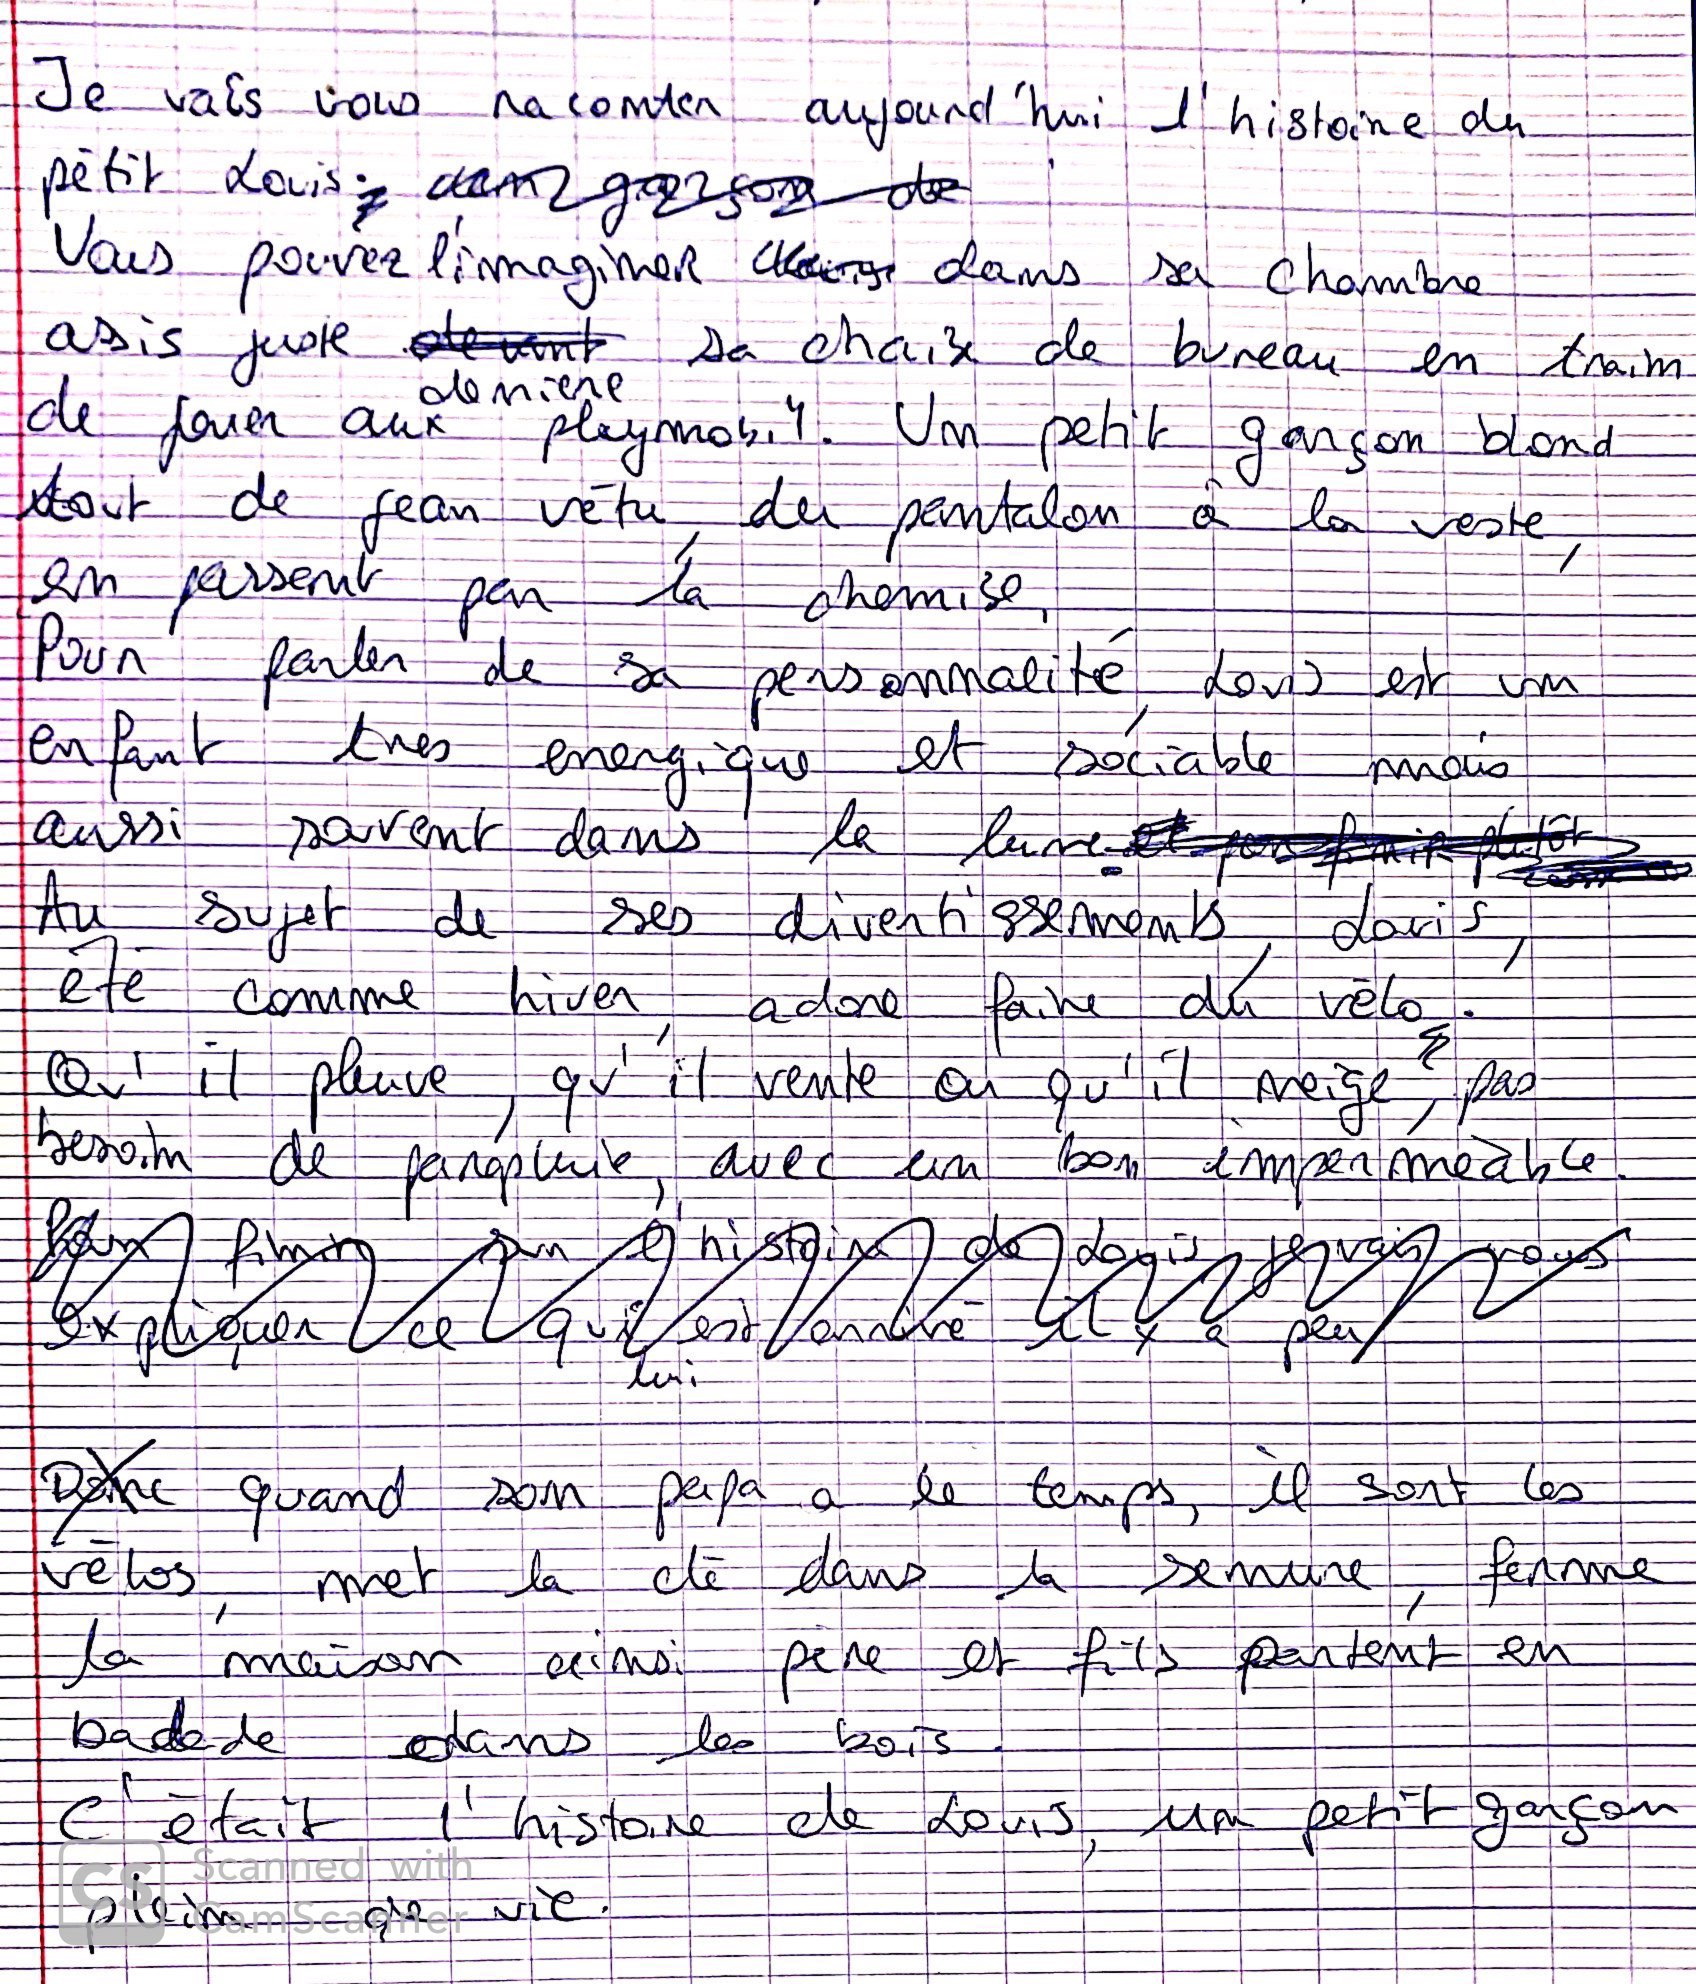 Je vais vous raconter aujourd'hui l'histoire du
pétit Louis.
Vous pouvez l'imaginer dans sa chambre
assis juste derriere sa chaise de bureau en train
de jouer aux playmobil. Un petit garçon blond
tout de jean vétu, du pantalon à la veste,
en passent par la chemise.
Pour parler de sa personnalité, Louis est un
enfant tres energique et sociable mais
aussi souvent dans la lune.
Au sujet de ses divertissements, Louis,
été comme hiver, adore faire du vélo.
Qu'il pleuve, qu'il vente ou qu'il neige, pas
besoin de parapluie, avec un bon imperméable.
Pour finir sur l'histoire de Louis je vais vous
expliquer ce qui est arrivé il y a peu
lui
Donc quand son papa a le temps, il sort les
vélos, met la clé dans la serrure, ferme
la maison ainsi père et fils partent en
balade dans les bois.
C'était l'histoire de Louis, un petit garçon
plein de vie.
CS Scanned with
CamScanner